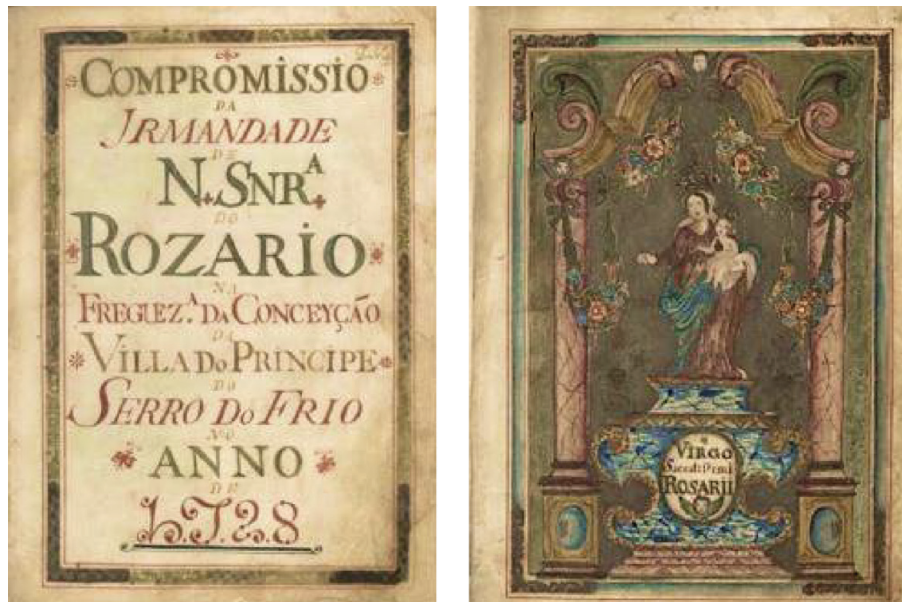 COMPROMISSIO
DA
IRMANDADE
DE
N. SNR.ᴬ
DO
ROZARIO
NA
FREGUEZ.ᴬ DA CONCEYÇÃO
DA
VILLA DO PRINCIPE
DO
SERRO DO FRIO
NO
ANNO
DE
1.7.2.8
VIRGO
ROSARII